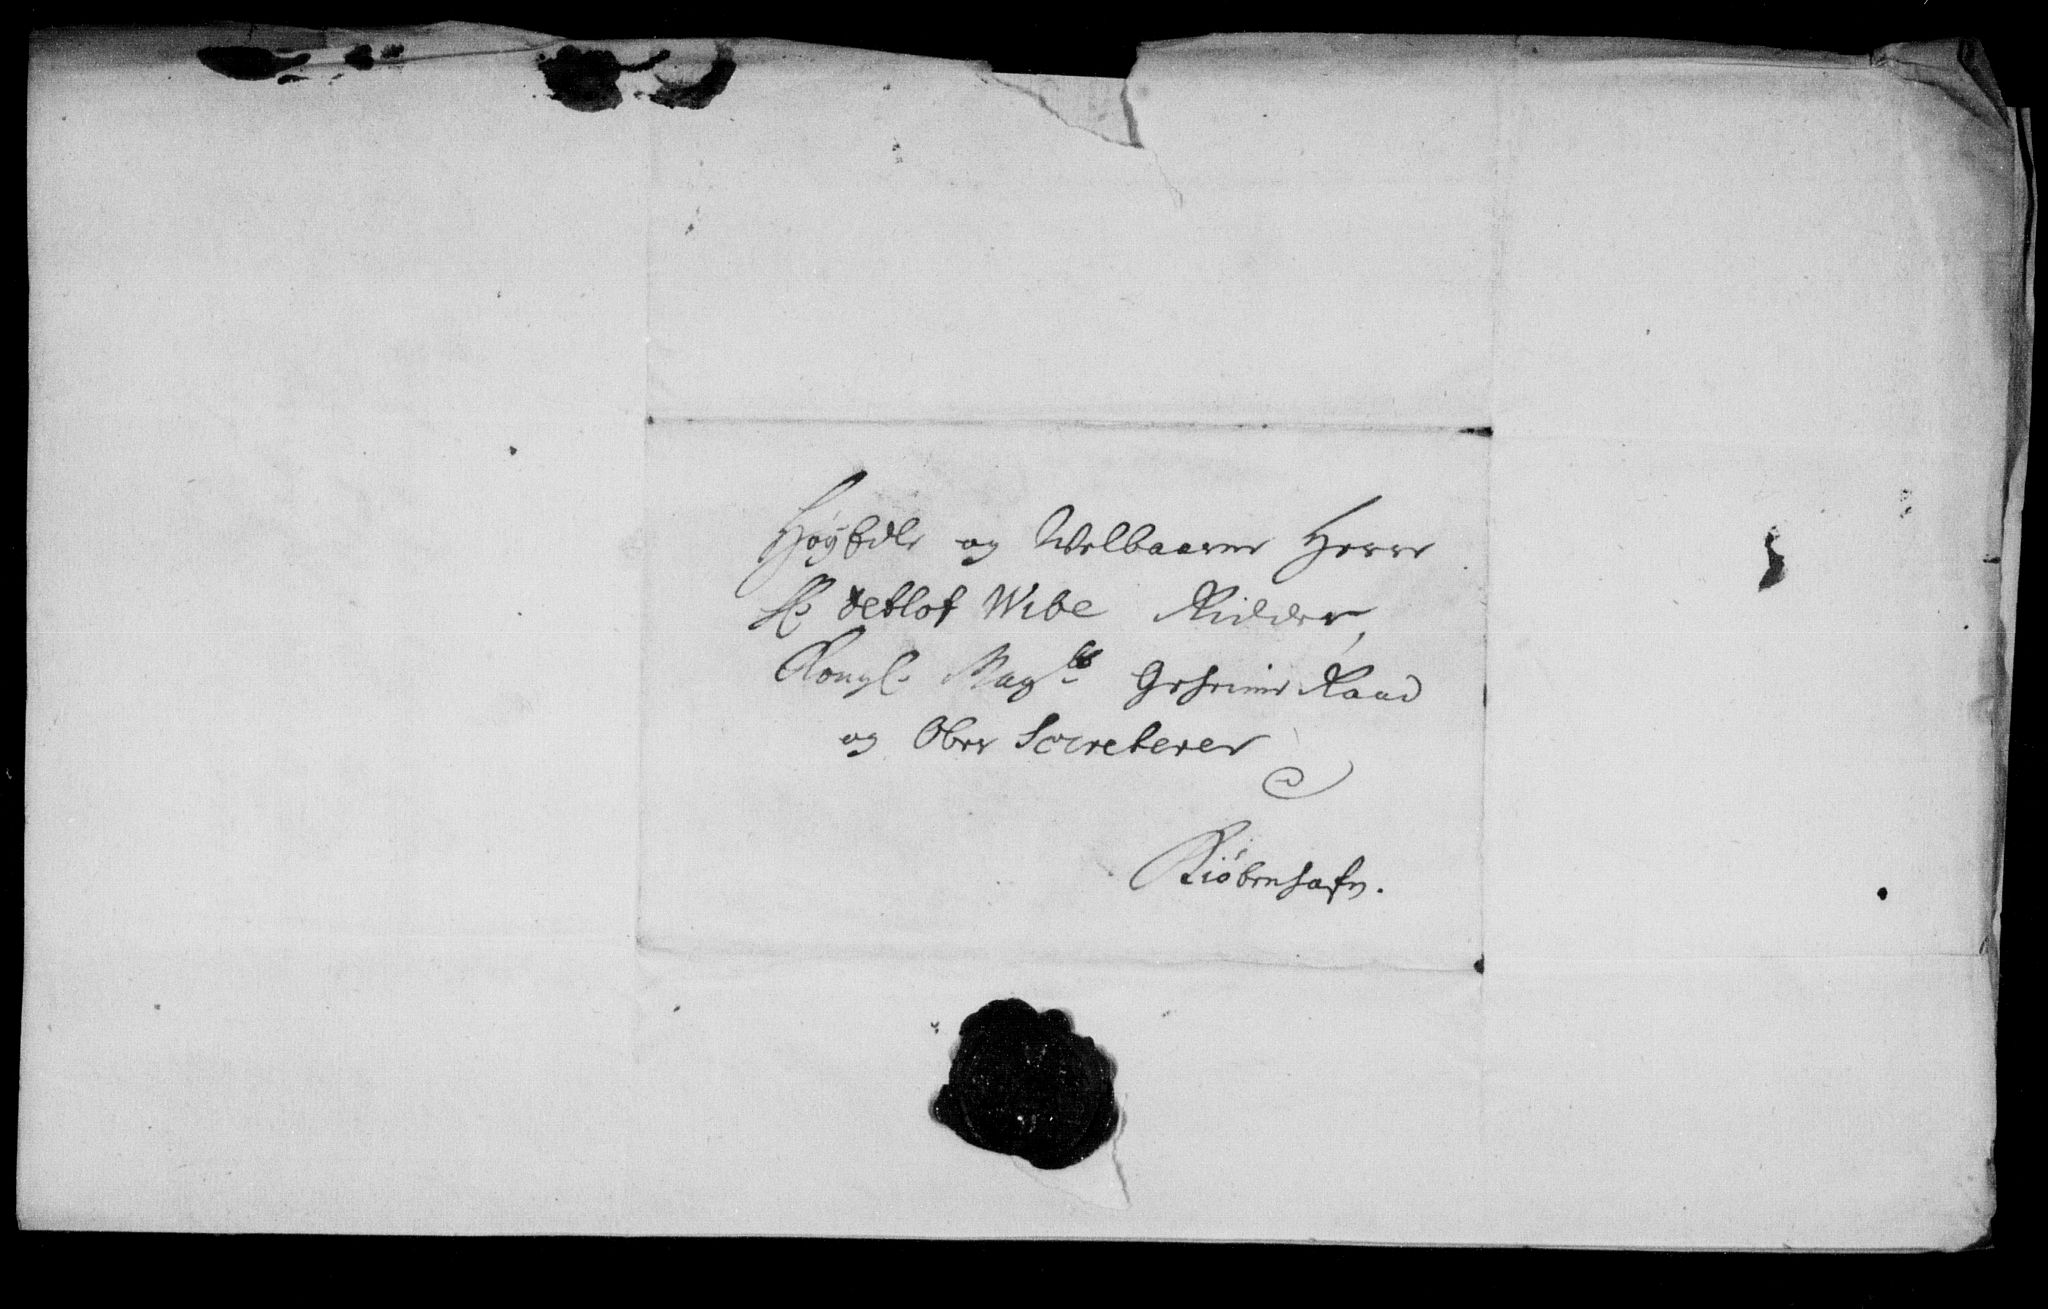 Höyædle og Welbaarne Herre
Hr Detlof Wibe Ridder,
Kongl. Mayts Geheime Raad
og Ober Secreterer
Kiöbenhafn.